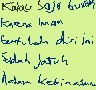 Kalau Saja bukan
Karena Iman
Sentuhlah diri ini
Sudah Jatuh
dalam Kebinasaan